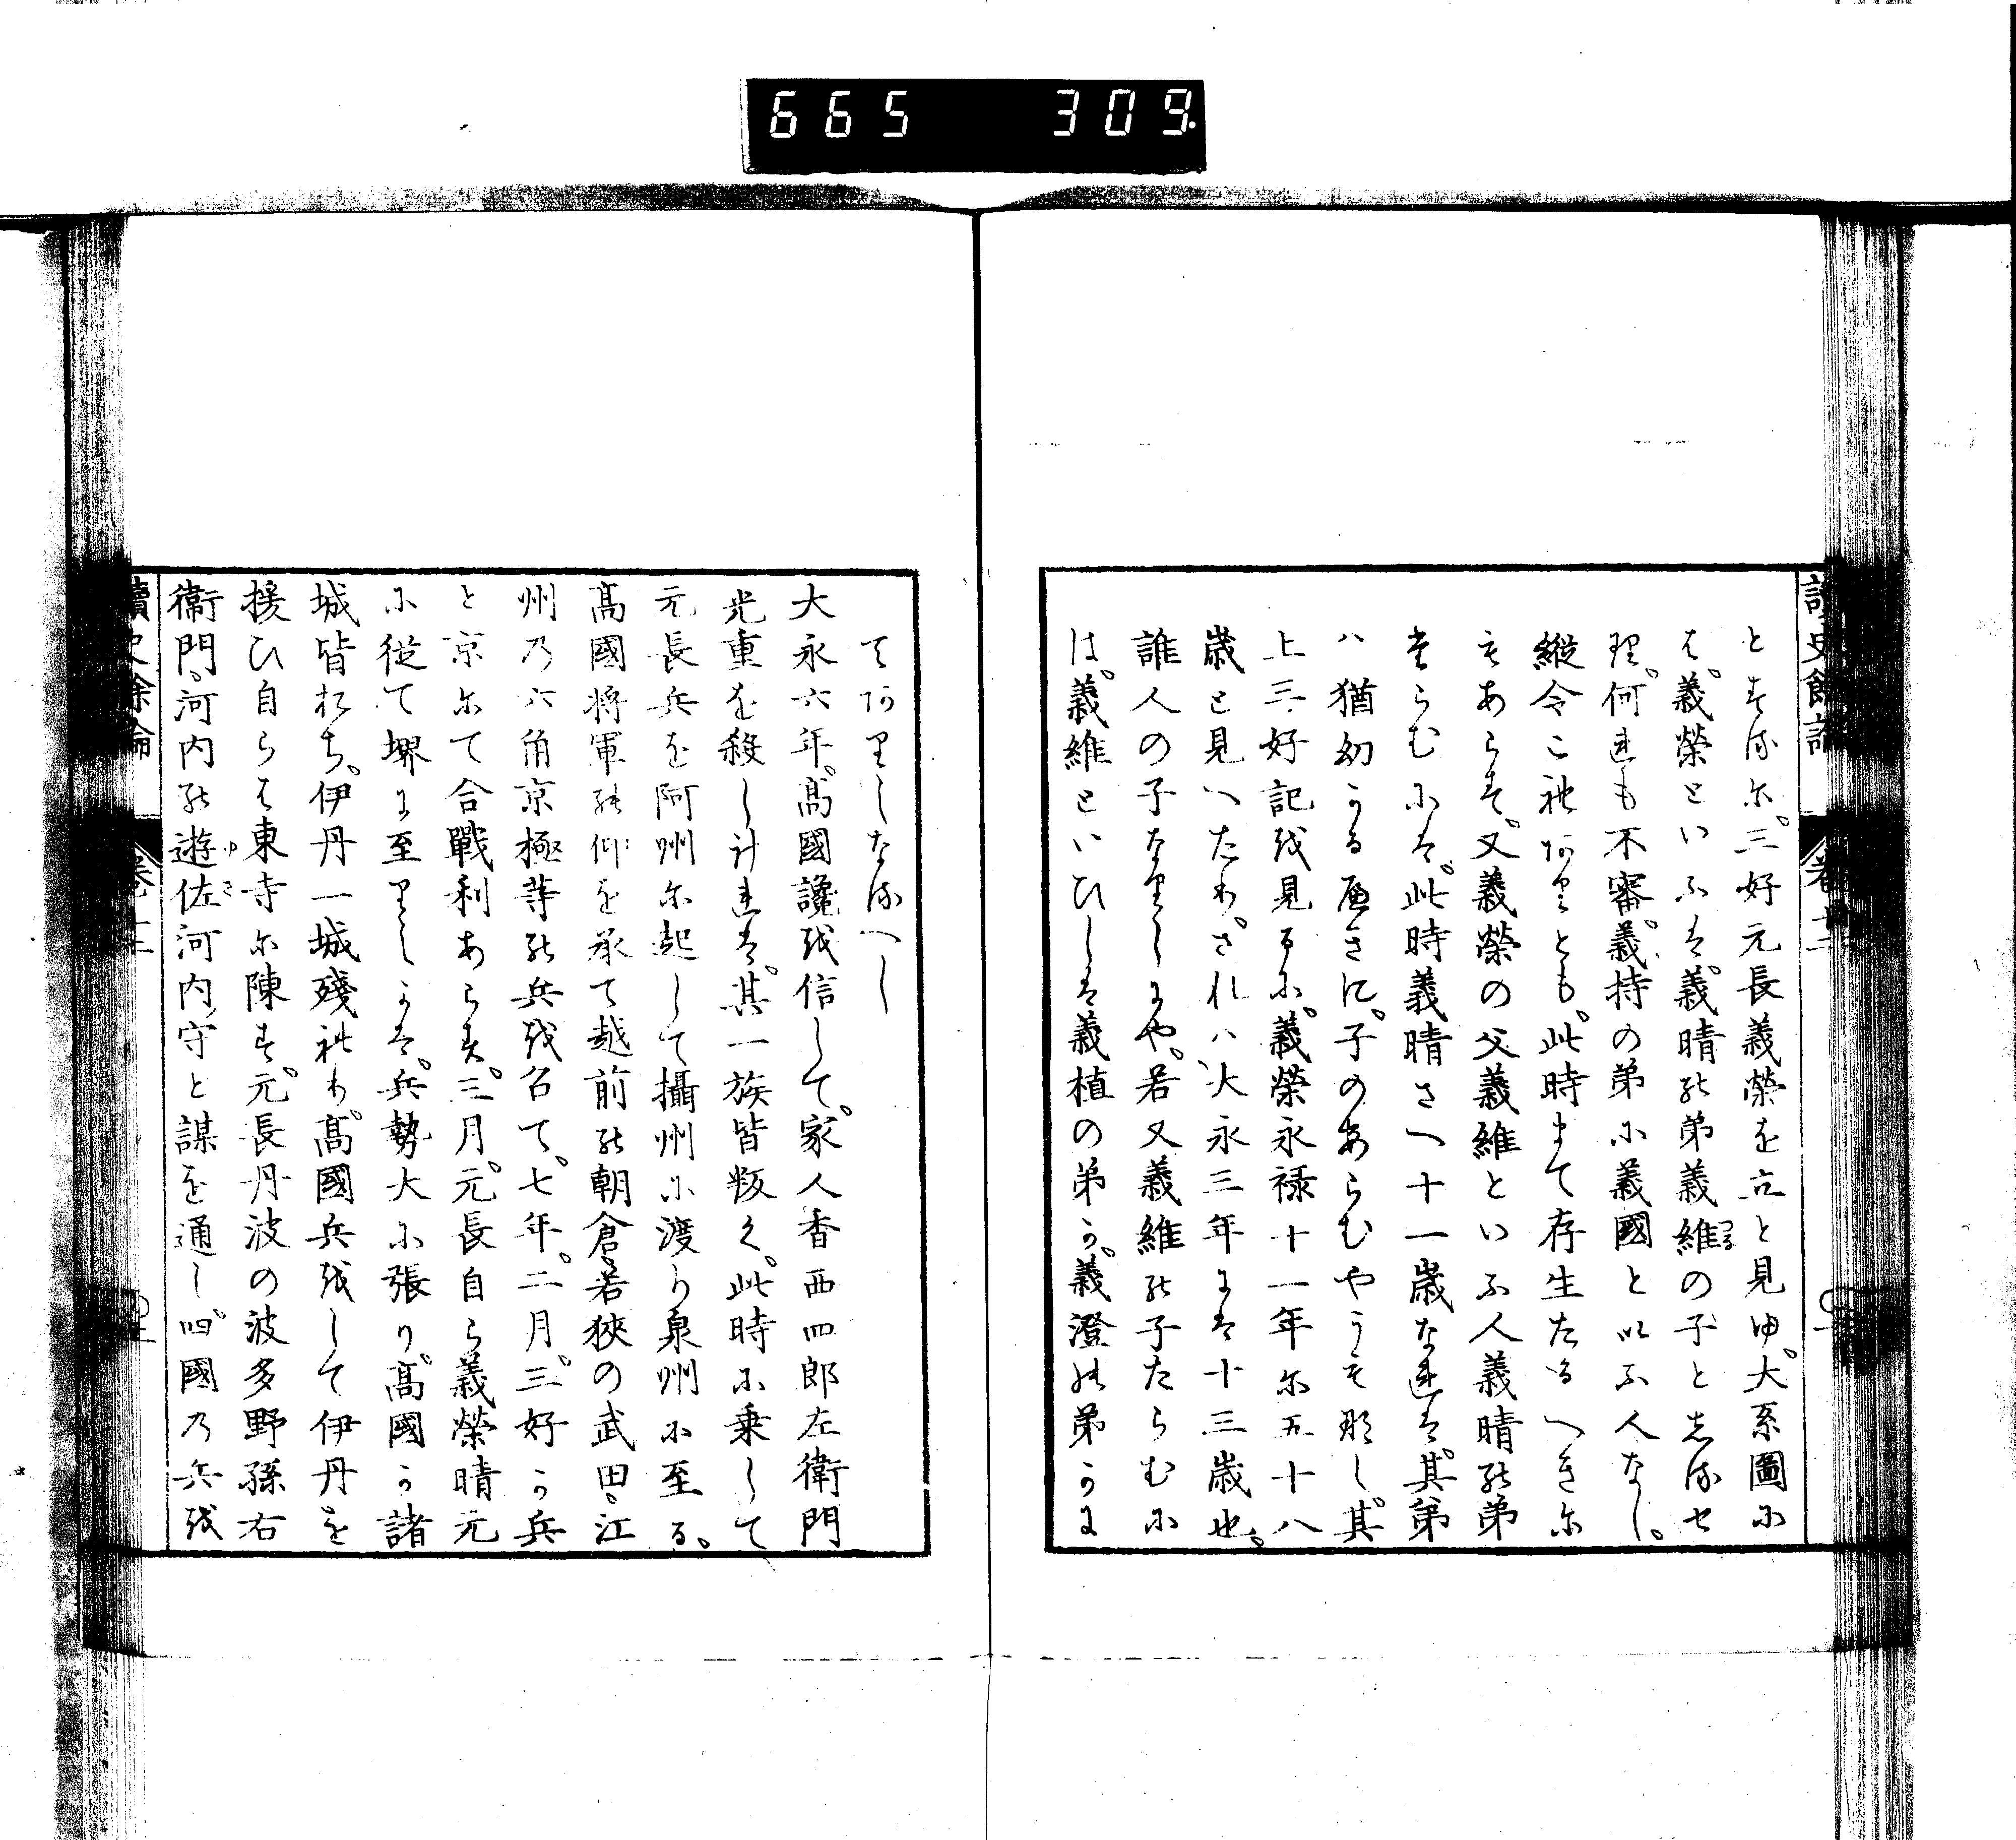 665 309.
讀史餘論 卷十二
とする尓。三好元長義榮を立と見ゆ。大系圖に
も。義榮といふは。義晴の弟義維の子としるせ
り。何れも不審。義持の弟に義國といふ人なし。
縱令これありとも。此時まて存生たるへき尓
もあらす。又義榮の父義維といふ人義晴の弟
たらむには。此時義晴さへ十一歳なれは。其弟
ハ猶幼かるへきに。子のあらむやうそ那し。其
上三好記を見るに。義榮永禄十一年尓五十八
歳と見へたり。されハ大永三年には十三歳也。
誰人の子なりしにや。若又義維の子たらむに
は。義維といひしは義植の弟か。義澄の弟かに
てありしなるへし
大永六年。髙國讒を信して。家人香西四郎左衛門
光重を殺し計れは。其一族皆叛く。此時に乗して
元長兵を阿州尓起して攝州に渡り泉州に至る。
髙國将軍の仰を承て越前の朝倉。若狹の武田。江
州乃六角京極等の兵を召て。七年。二月。三好か兵
と京尓て合戰利あらす。三月。元長自ら義榮晴元
に從て堺に至りしかは。兵勢大に張り。髙國か諸
城皆おち。伊丹一城殘れり。髙國兵をして伊丹を
援ひ自らは東寺尓陳す。元長丹波の波多野孫右
衞門。河内の遊佐河内守と謀を通し。四國乃兵を
讀史餘論 卷十二